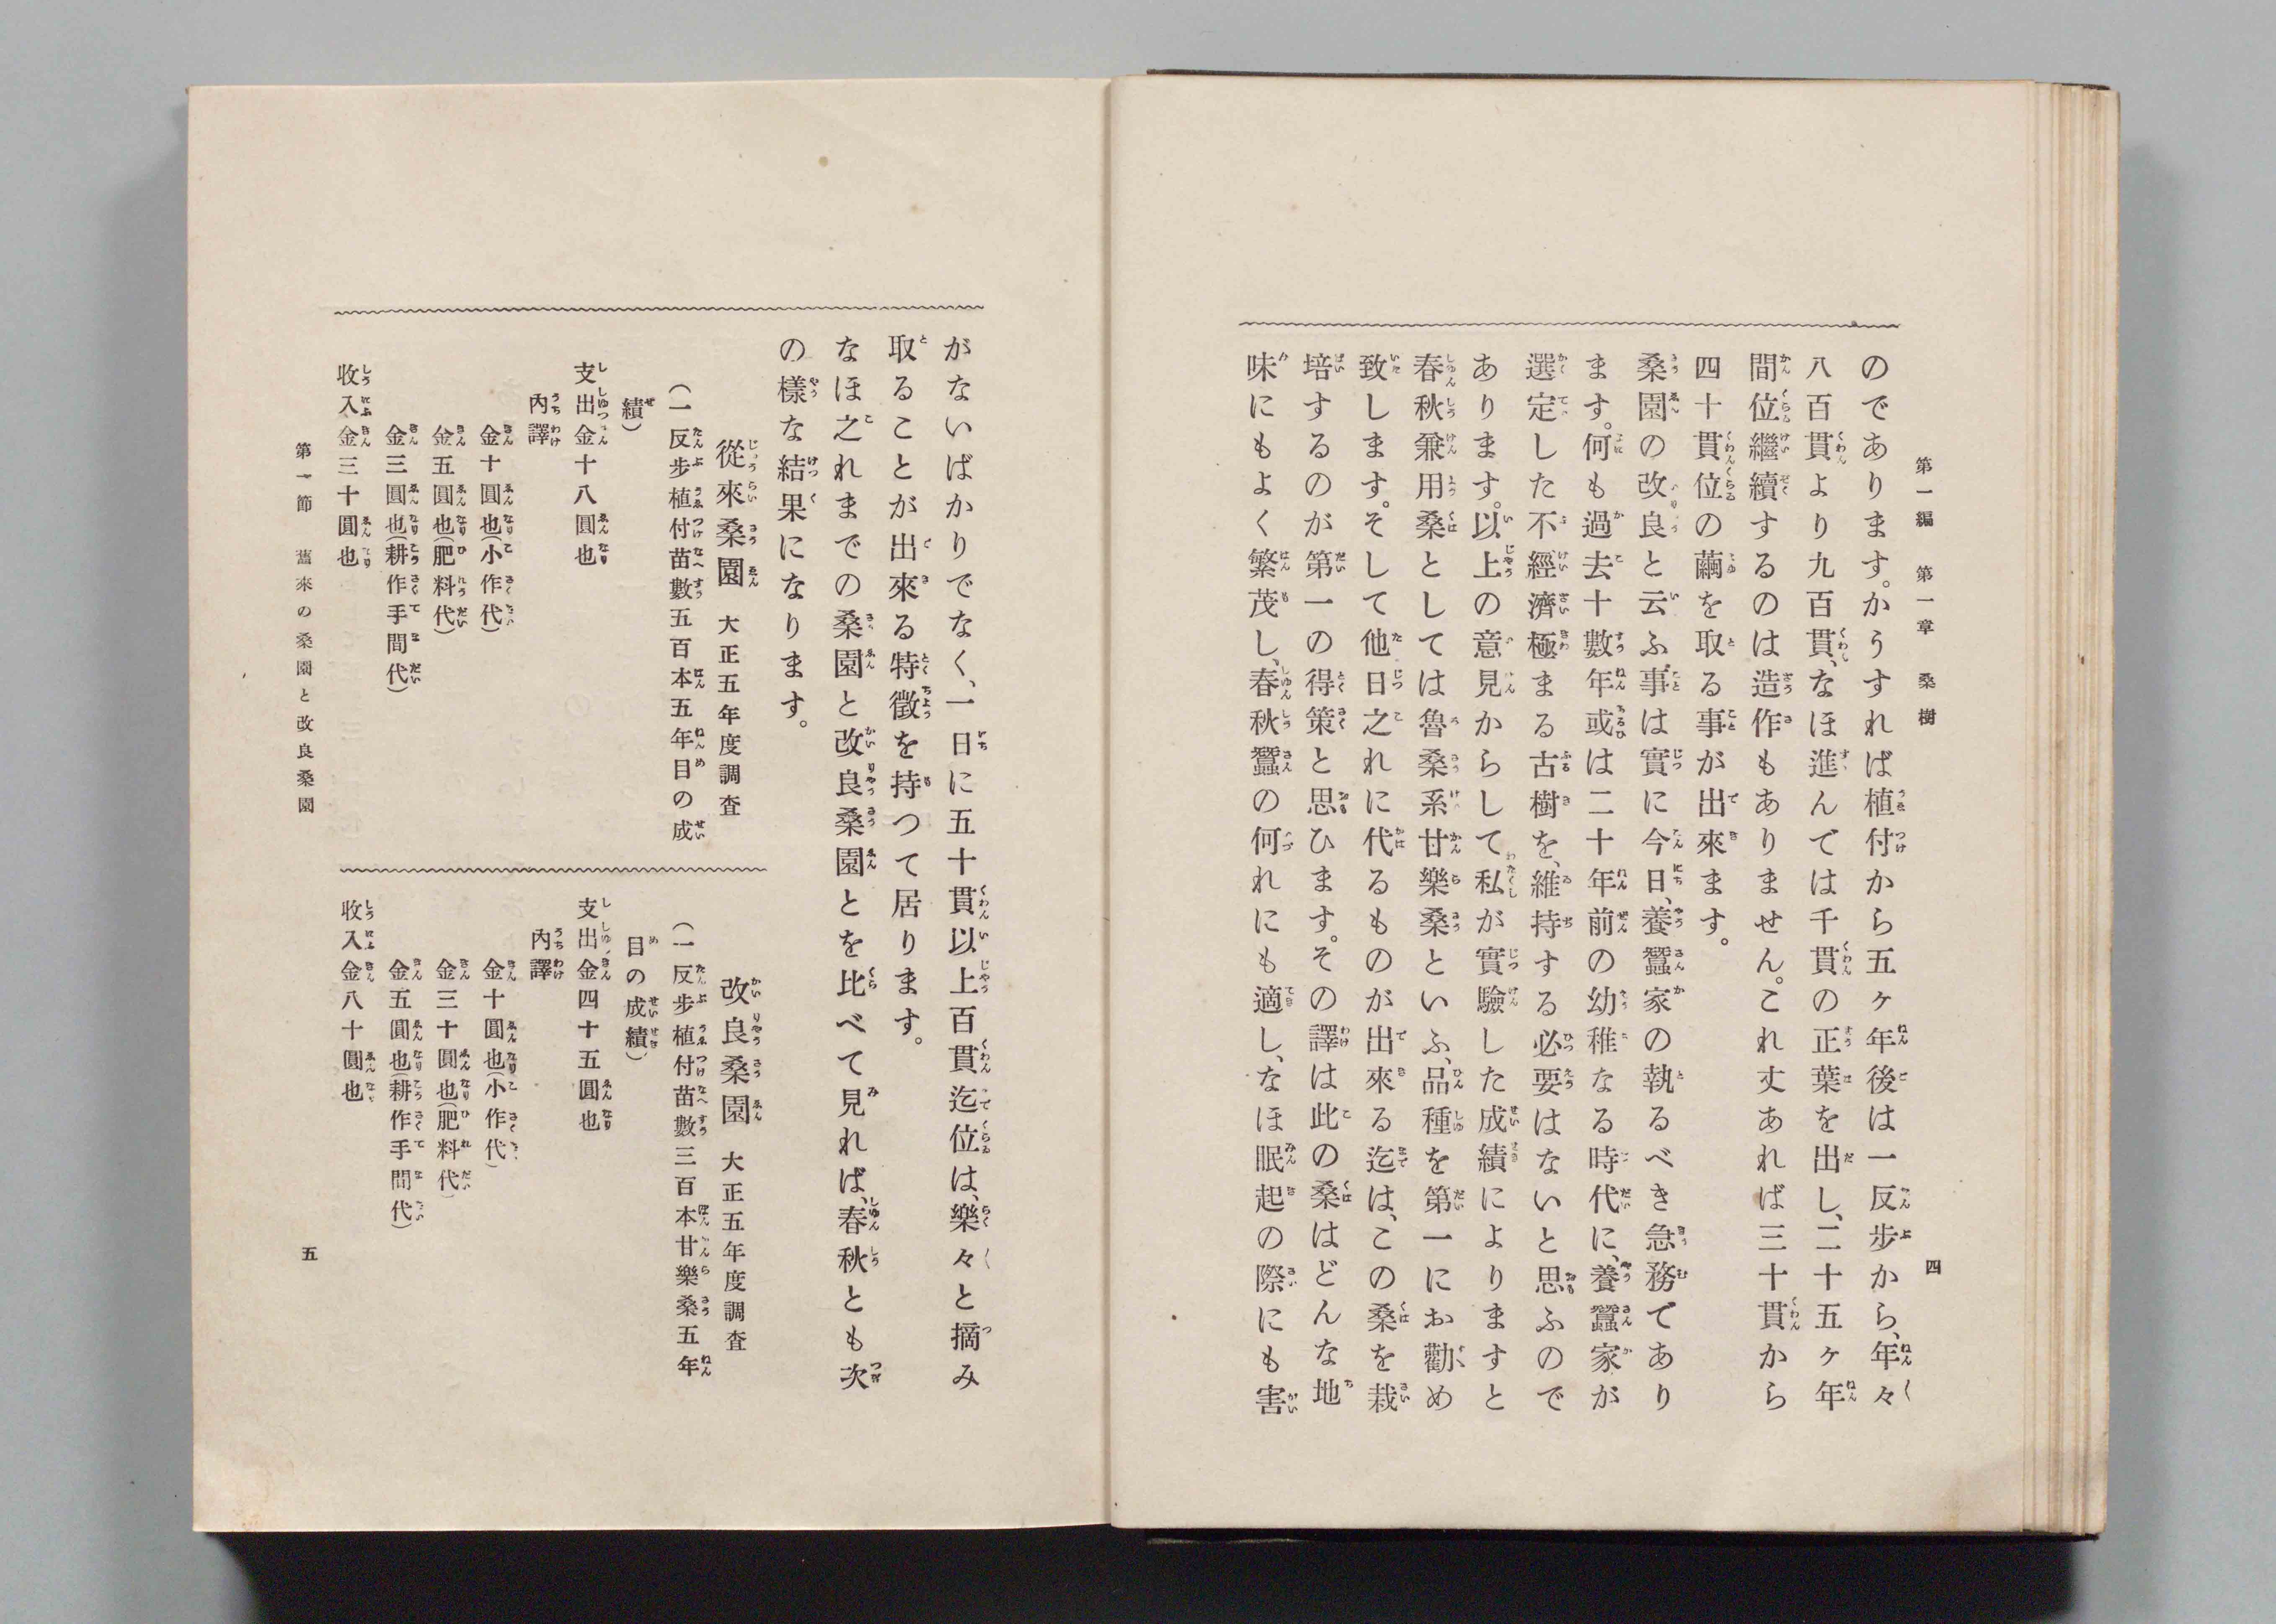 第一編　第一章　桑樹
四
のであります。かうすれば植付から五ヶ年後は一反歩から、年々
八百貫より九百貫、なほ進んでは千貫の正葉を出し、二十五ヶ年
間位繼續するのは造作もありません。これ丈あれば三十貫から
四十貫位の繭を取る事が出來ます。
桑園の改良と云ふ事は實に今日、養蠶家の執るべき急務であり
ます。何も過去十數年或は二十年前の幼稚なる時代に、養蠶家が
選定した不經濟極まる古樹を、維持する必要はないと思ふので
あります。以上の意見からして私が實驗した成績によりますと
春秋兼用桑としては魯桑系甘樂桑といふ、品種を第一にお勸め
致します。そして他日之れに代るものが出來る迄は、この桑を栽
培するのが第一の得策と思ひます。その譯は此の桑はどんな地
味にもよく繁茂し、春秋蠶の何れにも適し、なほ眠起の際にも害
がないばかりでなく、一日に五十貫以上百貫迄位は、樂々と摘み
取ることが出來る特徵を持つて居ります。
なほ之れまでの桑園と改良桑園とを比べて見れば、春秋とも次
の樣な結果になります。
從來桑園　大正五年度調査
(一反步植付苗數五百本五年目の成
績)
支出金十八圓也
內譯
金十圓也(小作代)
金五圓也(肥料代)
金三圓也(耕作手間代)
收入金三十圓也
改良桑園　大正五年度調査
(一反步植付苗數三百本甘樂桑五年
目の成績)
支出金四十五圓也
內譯
金十圓也(小作代)
金三十圓也(肥料代)
金五圓也(耕作手間代)
收入金八十圓也
第一節　舊來の桑園と改良桑園
五